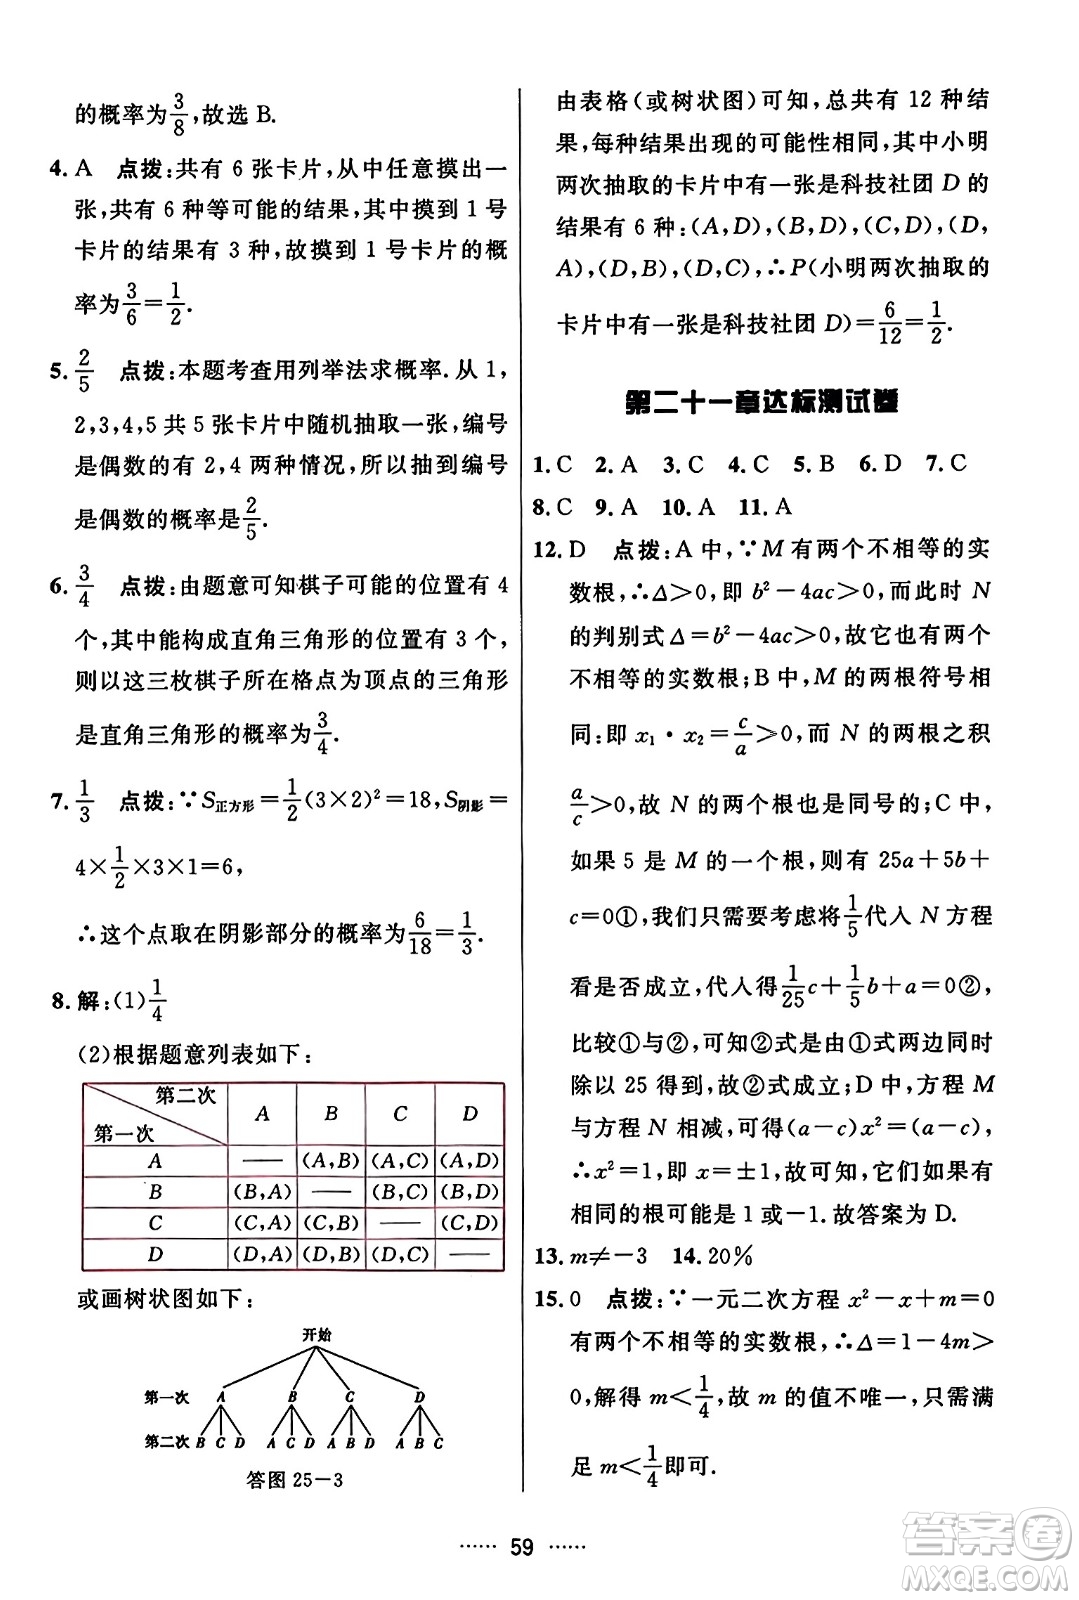 的概率为3/8,故选 B.
4. A　点拨:共有 6 张卡片,从中任意摸出一
张,共有 6 种等可能的结果,其中摸到 1 号
卡片的结果有 3 种,故摸到 1 号卡片的概
率为3/6=1/2.
5. 2/5　点拨:本题考查用列举法求概率.从 1,
2,3,4,5 共 5 张卡片中随机抽取一张,编号
是偶数的有 2,4 两种情况,所以抽到编号
是偶数的概率是2/5.
6. 3/4　点拨:由题意可知棋子可能的位置有 4
个,其中能构成直角三角形的位置有 3 个,
则以这三枚棋子所在格点为顶点的三角形
是直角三角形的概率为3/4.
7. 1/3　点拨:∵S正方形=1/2(3×2)²=18,S阴影=
4×1/2×3×1=6,
∴这个点取在阴影部分的概率为6/18=1/3.
8. 解:(1)1/4
(2)根据题意列表如下:
第二次 第一次 A B C D
A —— (A,B) (A,C) (A,D)
B (B,A) —— (B,C) (B,D)
C (C,A) (C,B) —— (C,D)
D (D,A) (D,B) (D,C) ——
或画树状图如下:
开始
第一次 A B C D
第二次 B C D A C D A B D A B C
答图 25－3
由表格(或树状图)可知,总共有 12 种结
果,每种结果出现的可能性相同,其中小明
两次抽取的卡片中有一张是科技社团 D 的
结果有 6 种:(A,D),(B,D),(C,D),(D,
A),(D,B),(D,C),∴P(小明两次抽取的
卡片中有一张是科技社团 D)=6/12=1/2.
第二十一章达标测试卷
1. C　2. A　3. C　4. C　5. B　6. D　7. C
8. C　9. A　10. A　11. A
12. D　点拨:A 中,∵M 有两个不相等的实
数根,∴Δ>0,即 b²－4ac>0,而此时 N
的判别式 Δ=b²－4ac>0,故它也有两个
不相等的实数根;B 中,M 的两根符号相
同:即 x₁·x₂=c/a>0,而 N 的两根之积
a/c>0,故 N 的两个根也是同号的;C 中,
如果 5 是 M 的一个根,则有 25a＋5b＋
c=0①,我们只需要考虑将1/5代入 N 方程
看是否成立,代入得1/25c＋1/5b＋a=0②,
比较①与②,可知②式是由①式两边同时
除以 25 得到,故②式成立;D 中,方程 M
与方程 N 相减,可得(a－c)x²=(a－c),
∴x²=1,即 x=±1,故可知,它们如果有
相同的根可能是 1 或－1.故答案为 D.
13. m≠－3　14. 20%
15. 0　点拨:∵一元二次方程 x²－x＋m=0
有两个不相等的实数根,∴Δ=1－4m>
0,解得 m<1/4,故 m 的值不唯一,只需满
足 m<1/4即可.
······ 59 ······
答案卷
MXQE.COM